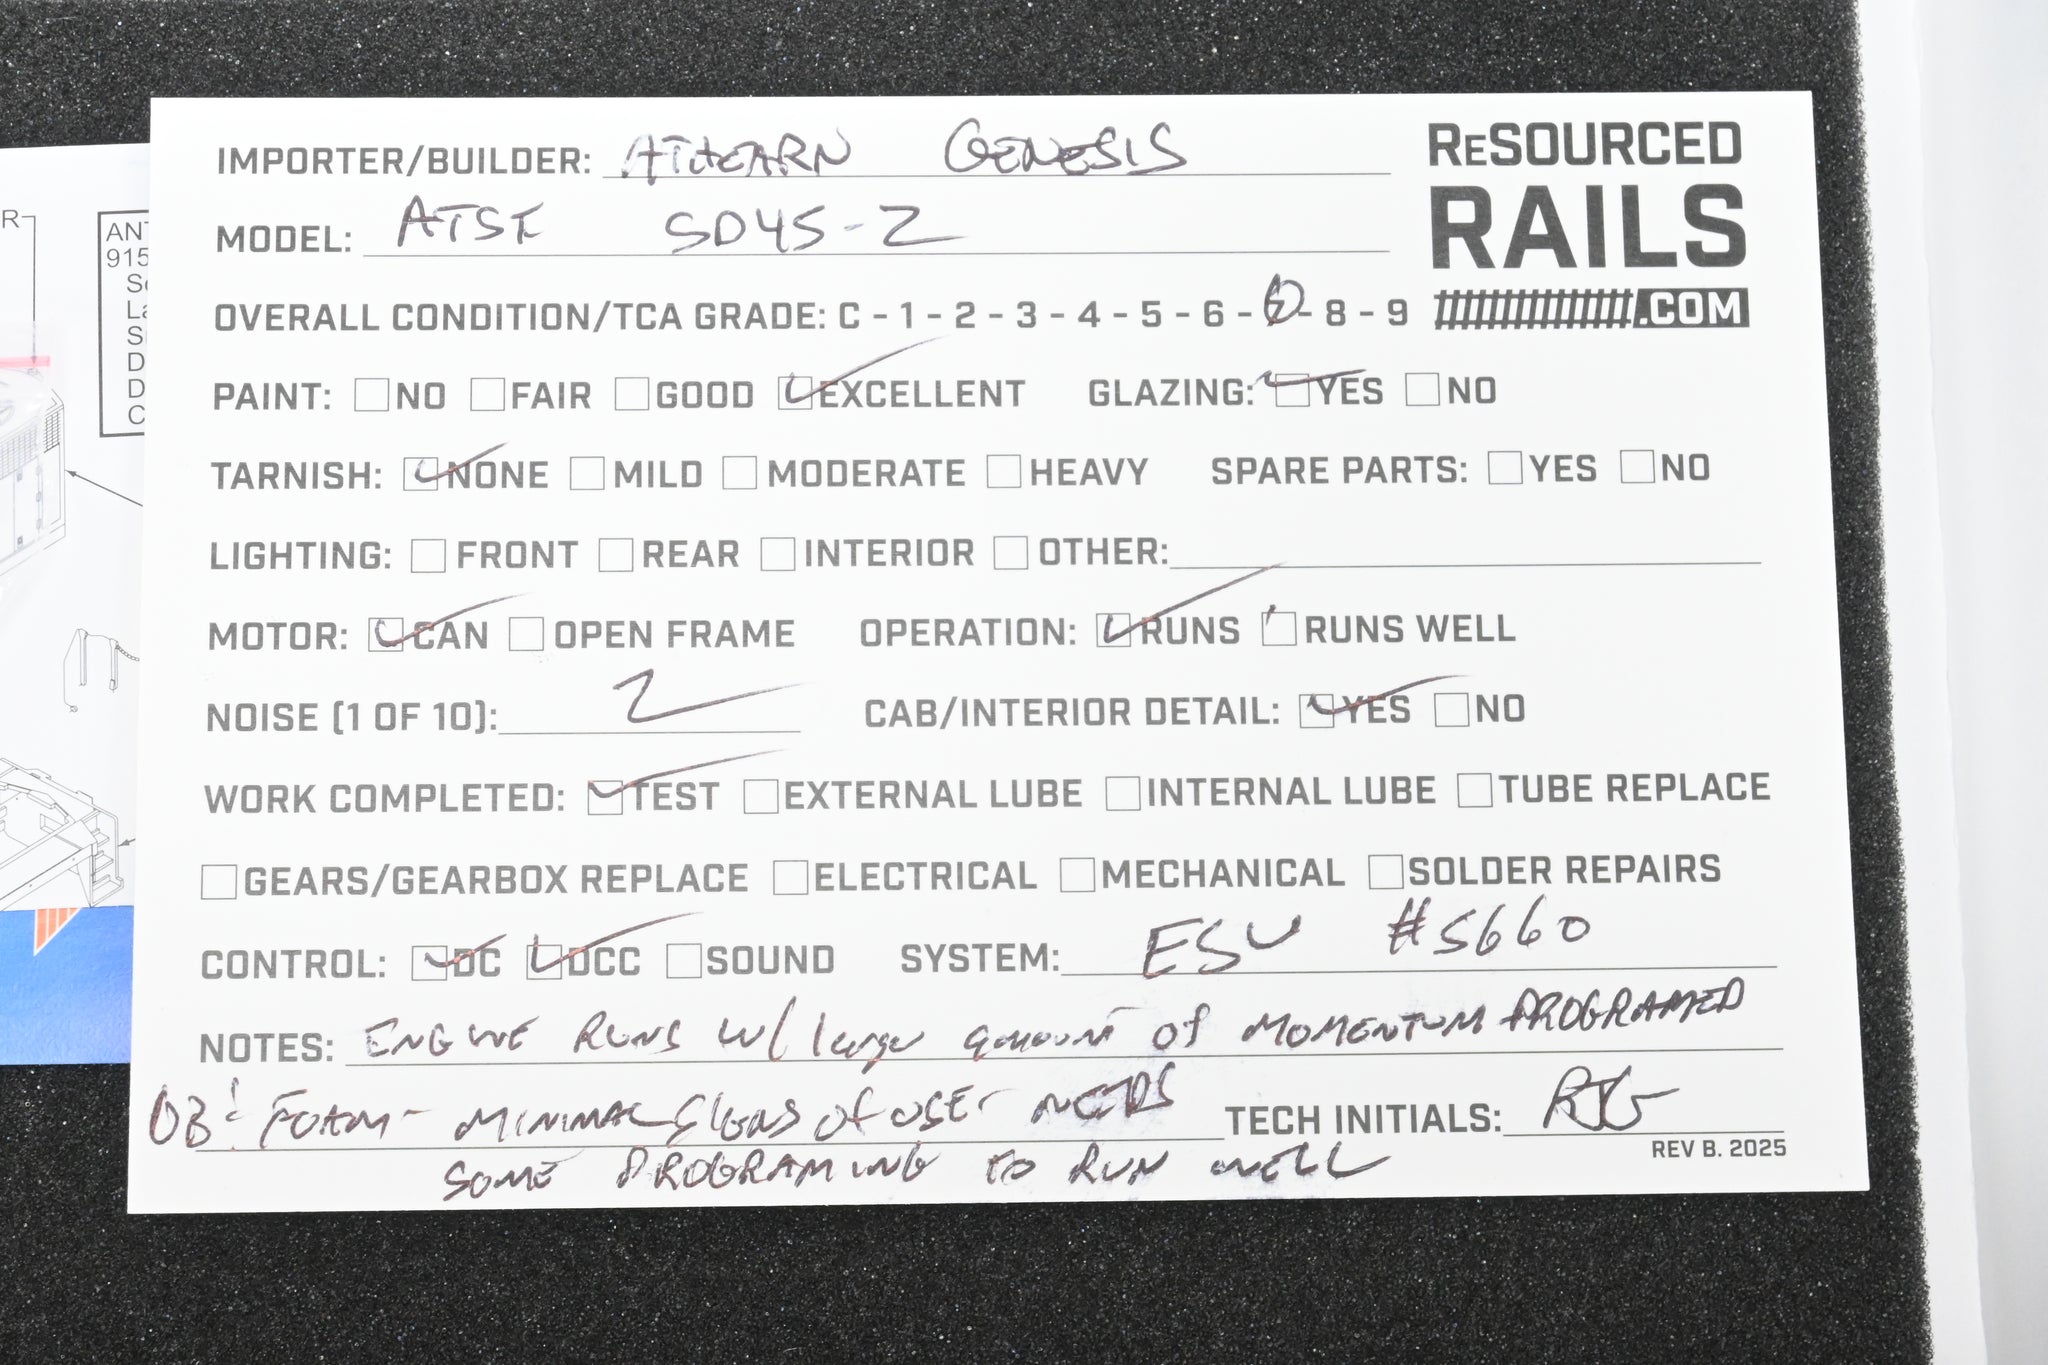 IMPORTER/BUILDER: ATHEARN GENESIS
ReSOURCED
RAILS
.COM
MODEL: ATSF SD45-2
OVERALL CONDITION/TCA GRADE: C - 1 - 2 - 3 - 4 - 5 - 6 - 7 - 8 - 9
PAINT: NO FAIR GOOD EXCELLENT GLAZING: YES NO
TARNISH: NONE MILD MODERATE HEAVY SPARE PARTS: YES NO
LIGHTING: FRONT REAR INTERIOR OTHER:
MOTOR: CAN OPEN FRAME OPERATION: RUNS RUNS WELL
NOISE (1 OF 10): 2 CAB/INTERIOR DETAIL: YES NO
WORK COMPLETED: TEST EXTERNAL LUBE INTERNAL LUBE TUBE REPLACE
GEARS/GEARBOX REPLACE ELECTRICAL MECHANICAL SOLDER REPAIRS
CONTROL: DC DCC SOUND SYSTEM: ESU #5660
NOTES: ENGINE RUNS W/ large amount of MOMENTUM PROGRAMED
OB: FOAM - MINIMAL SIGNS OF USE - NEEDS TECH INITIALS:
SOME PROGRAMING TO RUN WELL
REV B. 2025
R
AN
915
S
L
S
D
D
C